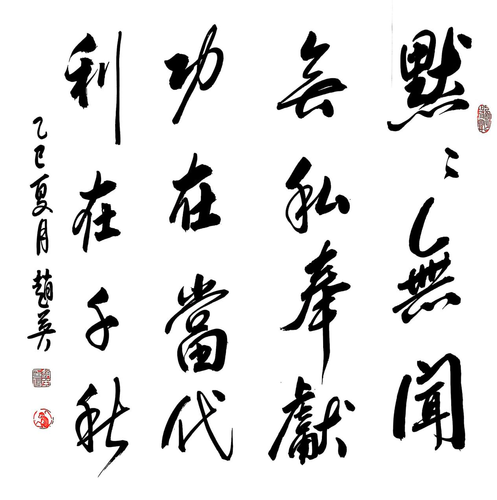 默〻無聞
無私奉獻
功在當代
利在千秋
乙巳夏月 趙英